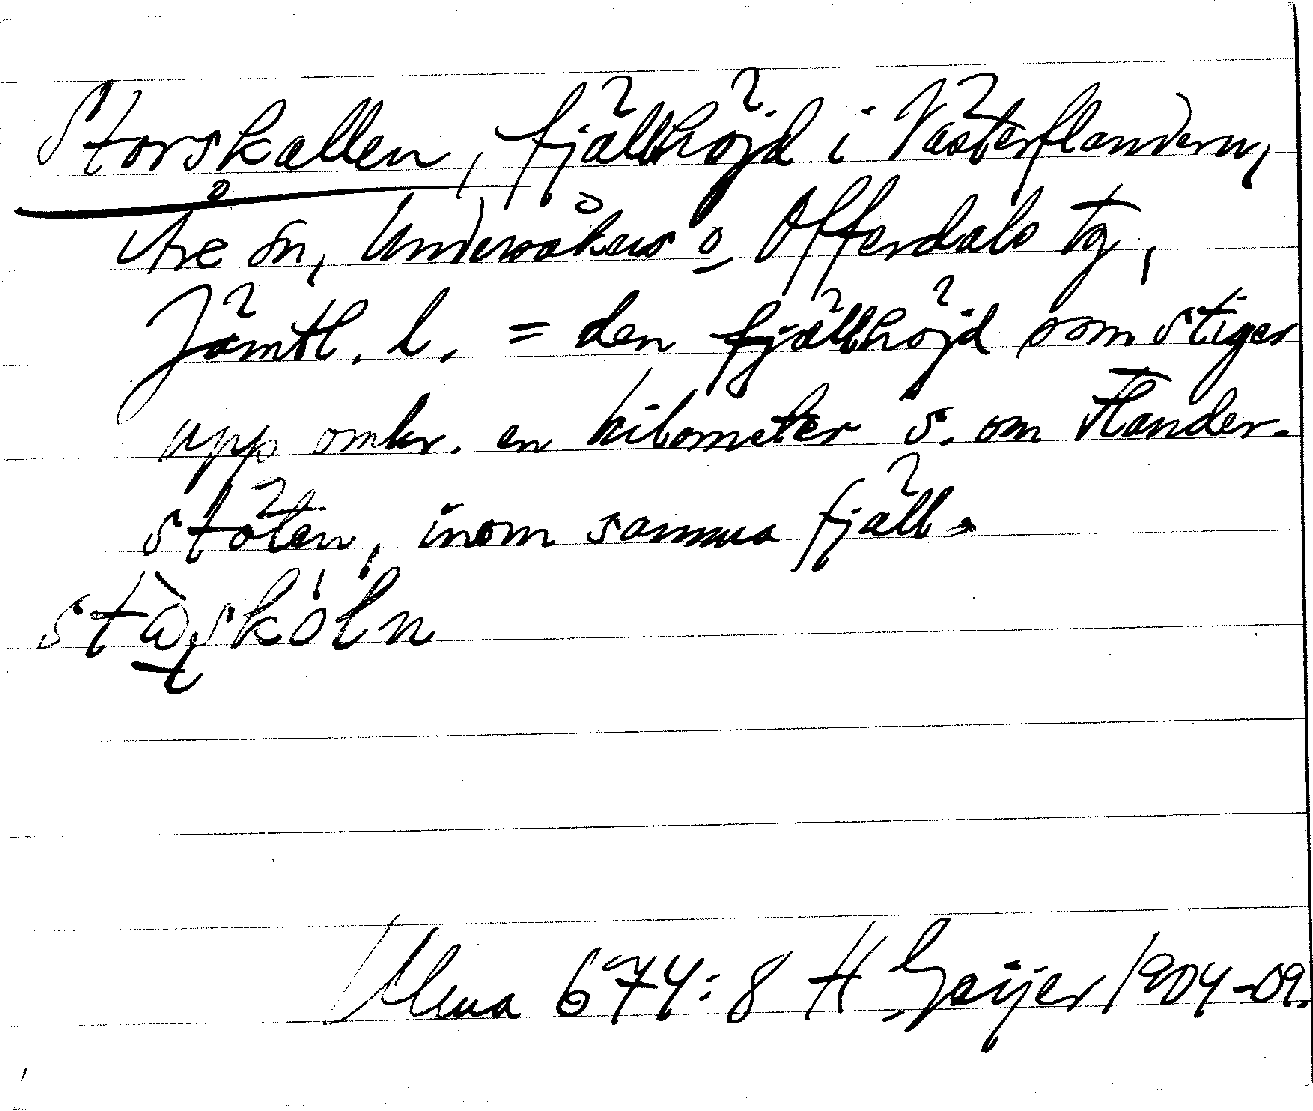 Storskallen, fjällhöjd i Västerflandern,
Åre sn, Undersåkers o Offerdals tg,
Jämtl. l. = den fjällhöjd som stiger
upp omkr. en kilometer s. om Flander-
stöten, inom samma fjäll.
674:8 H Geijer 1904-09.